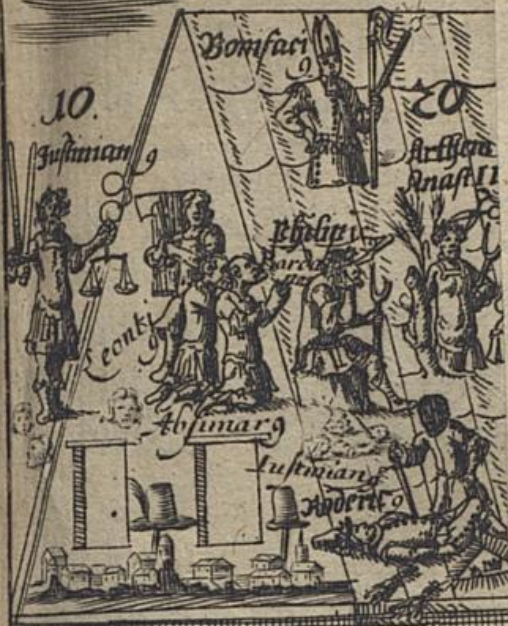 Bonifaci9
10.
20
Justinian9
Arthem
Anast II
Philipi
Barda
Leonti9
Absimar9
Justinian9
Roderic9